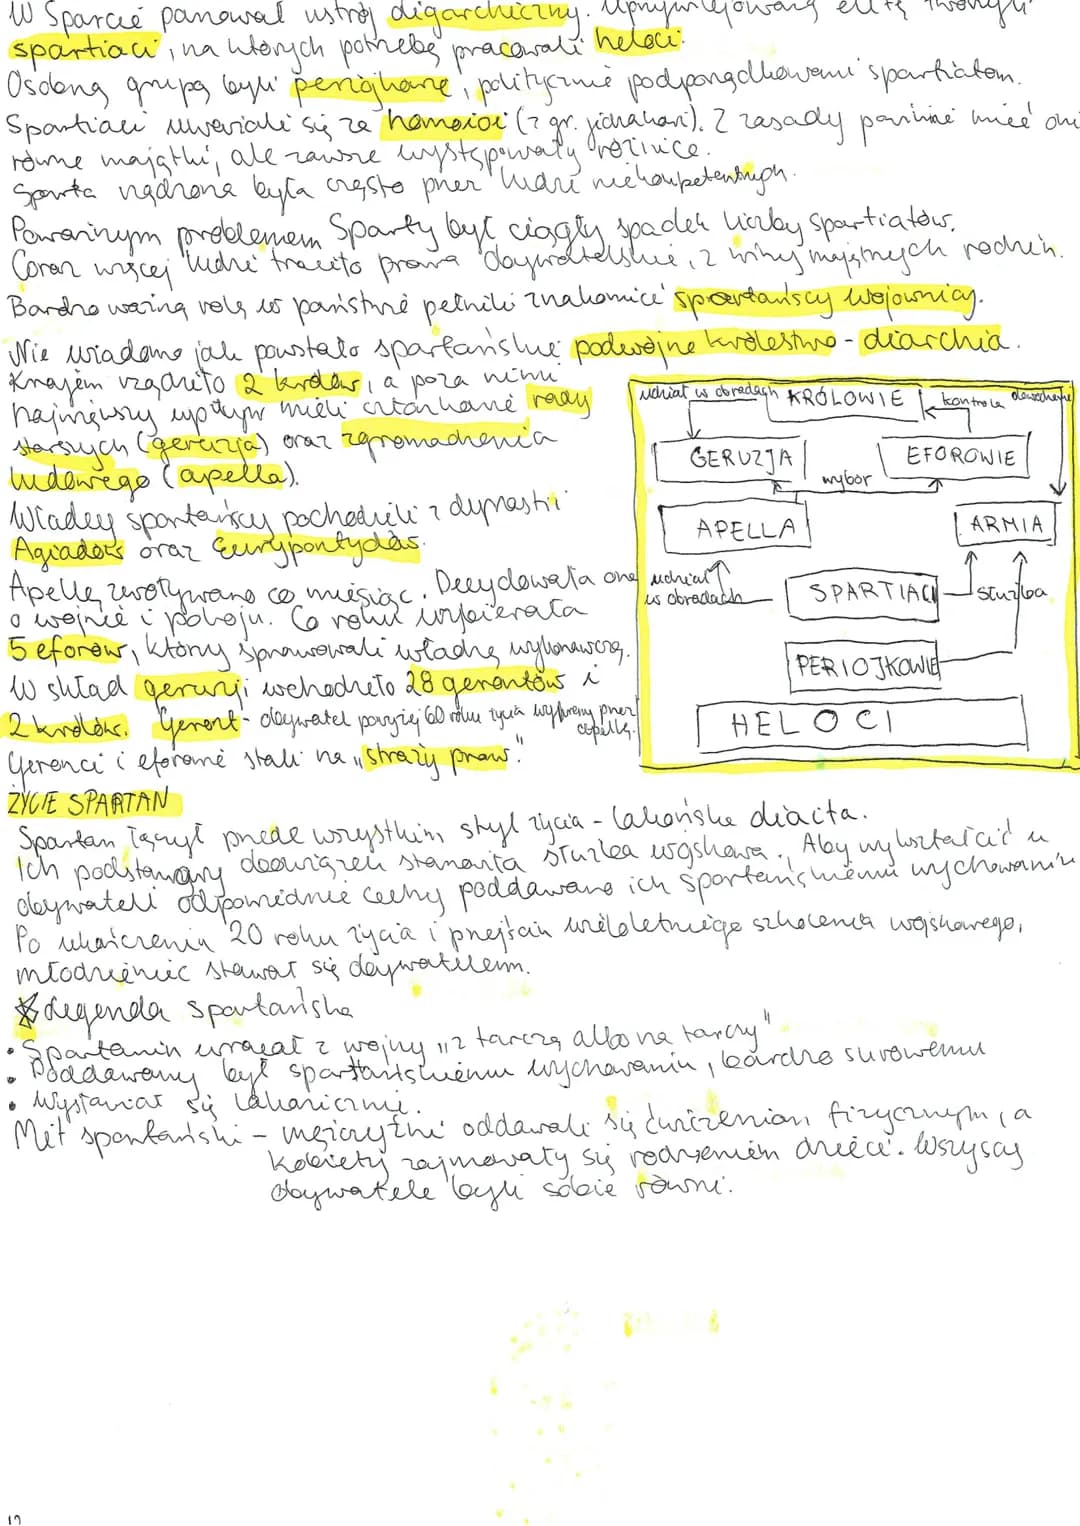 W Sparcie panował ustrój oligarchiczny. Uprzywilejowaną elitę tworzyli
spartiaci, na których potrzebę pracowali heloci.
Osobną grupą byli periojkowie, politycznie podporządkowani spartiatom.
Spartiaci uważali się za homoioi (z gr. jednakowi). Z zasady powinni mieć oni
równe majątki, ale zawsze występowały różnice.
Sparta rządzona była często przez ludzi niekompetentnych.
Poważnym problemem Sparty był ciągły spadek liczby spartiatów.
Coraz więcej ludzi traciło prawa obywatelskie, z winy majętnych rodzin.
Bardzo ważną rolę w państwie pełnili znakomici spartańscy wojownicy.
Nie wiadomo jak powstało spartańskie podwójne królestwo - diarchia.
Krajem rządziło 2 królów, a poza nimi
największy wpływ mieli członkowie rady
starszych (geruzja) oraz zgromadzenia
ludowego (apella).
Władcy spartańscy pochodzili z dynastii
Agiadów oraz Eurypontydów.
Apellę zwoływano co miesiąc. Decydowała ona
o wojnie i pokoju. Co roku wybierała
5 eforów, którzy sprawowali władzę wykonawczą.
W skład geruzji wchodziło 28 gerontów i
2 królów. Geront - obywatel powyżej 60 roku życia wybierany przez
apellę.
Geronci i eforowie stali na „straży praw."
udział w obradach KRÓLOWIE kontrola dowodzenie
GERUZJA EFOROWIE
wybór
APELLA ARMIA
udział
w obradach SPARTIACI służba
PERIOJKOWIE
HELOCI
ŻYCIE SPARTAN
Spartan łączył przede wszystkim styl życia - lakońska diaita.
Ich podstawowy obowiązek stanowiła służba wojskowa. Aby wykształcić u
obywateli odpowiednie cechy poddawano ich spartańskiemu wychowaniu
Po ukończeniu 20 roku życia i przejściu wieloletniego szkolenia wojskowego,
młodzieniec stawał się obywatelem.
Legenda spartańska
• Spartanin wracał z wojny „z tarczą albo na tarczy"
• Poddawany był spartańskiemu wychowaniu, bardzo surowemu
• Wysławiał się lakonicznie.
Mit spartański - mężczyźni oddawali się ćwiczeniom fizycznym, a
kobiety zajmowały się rodzeniem dzieci. Wszyscy
obywatele byli sobie równi.
12